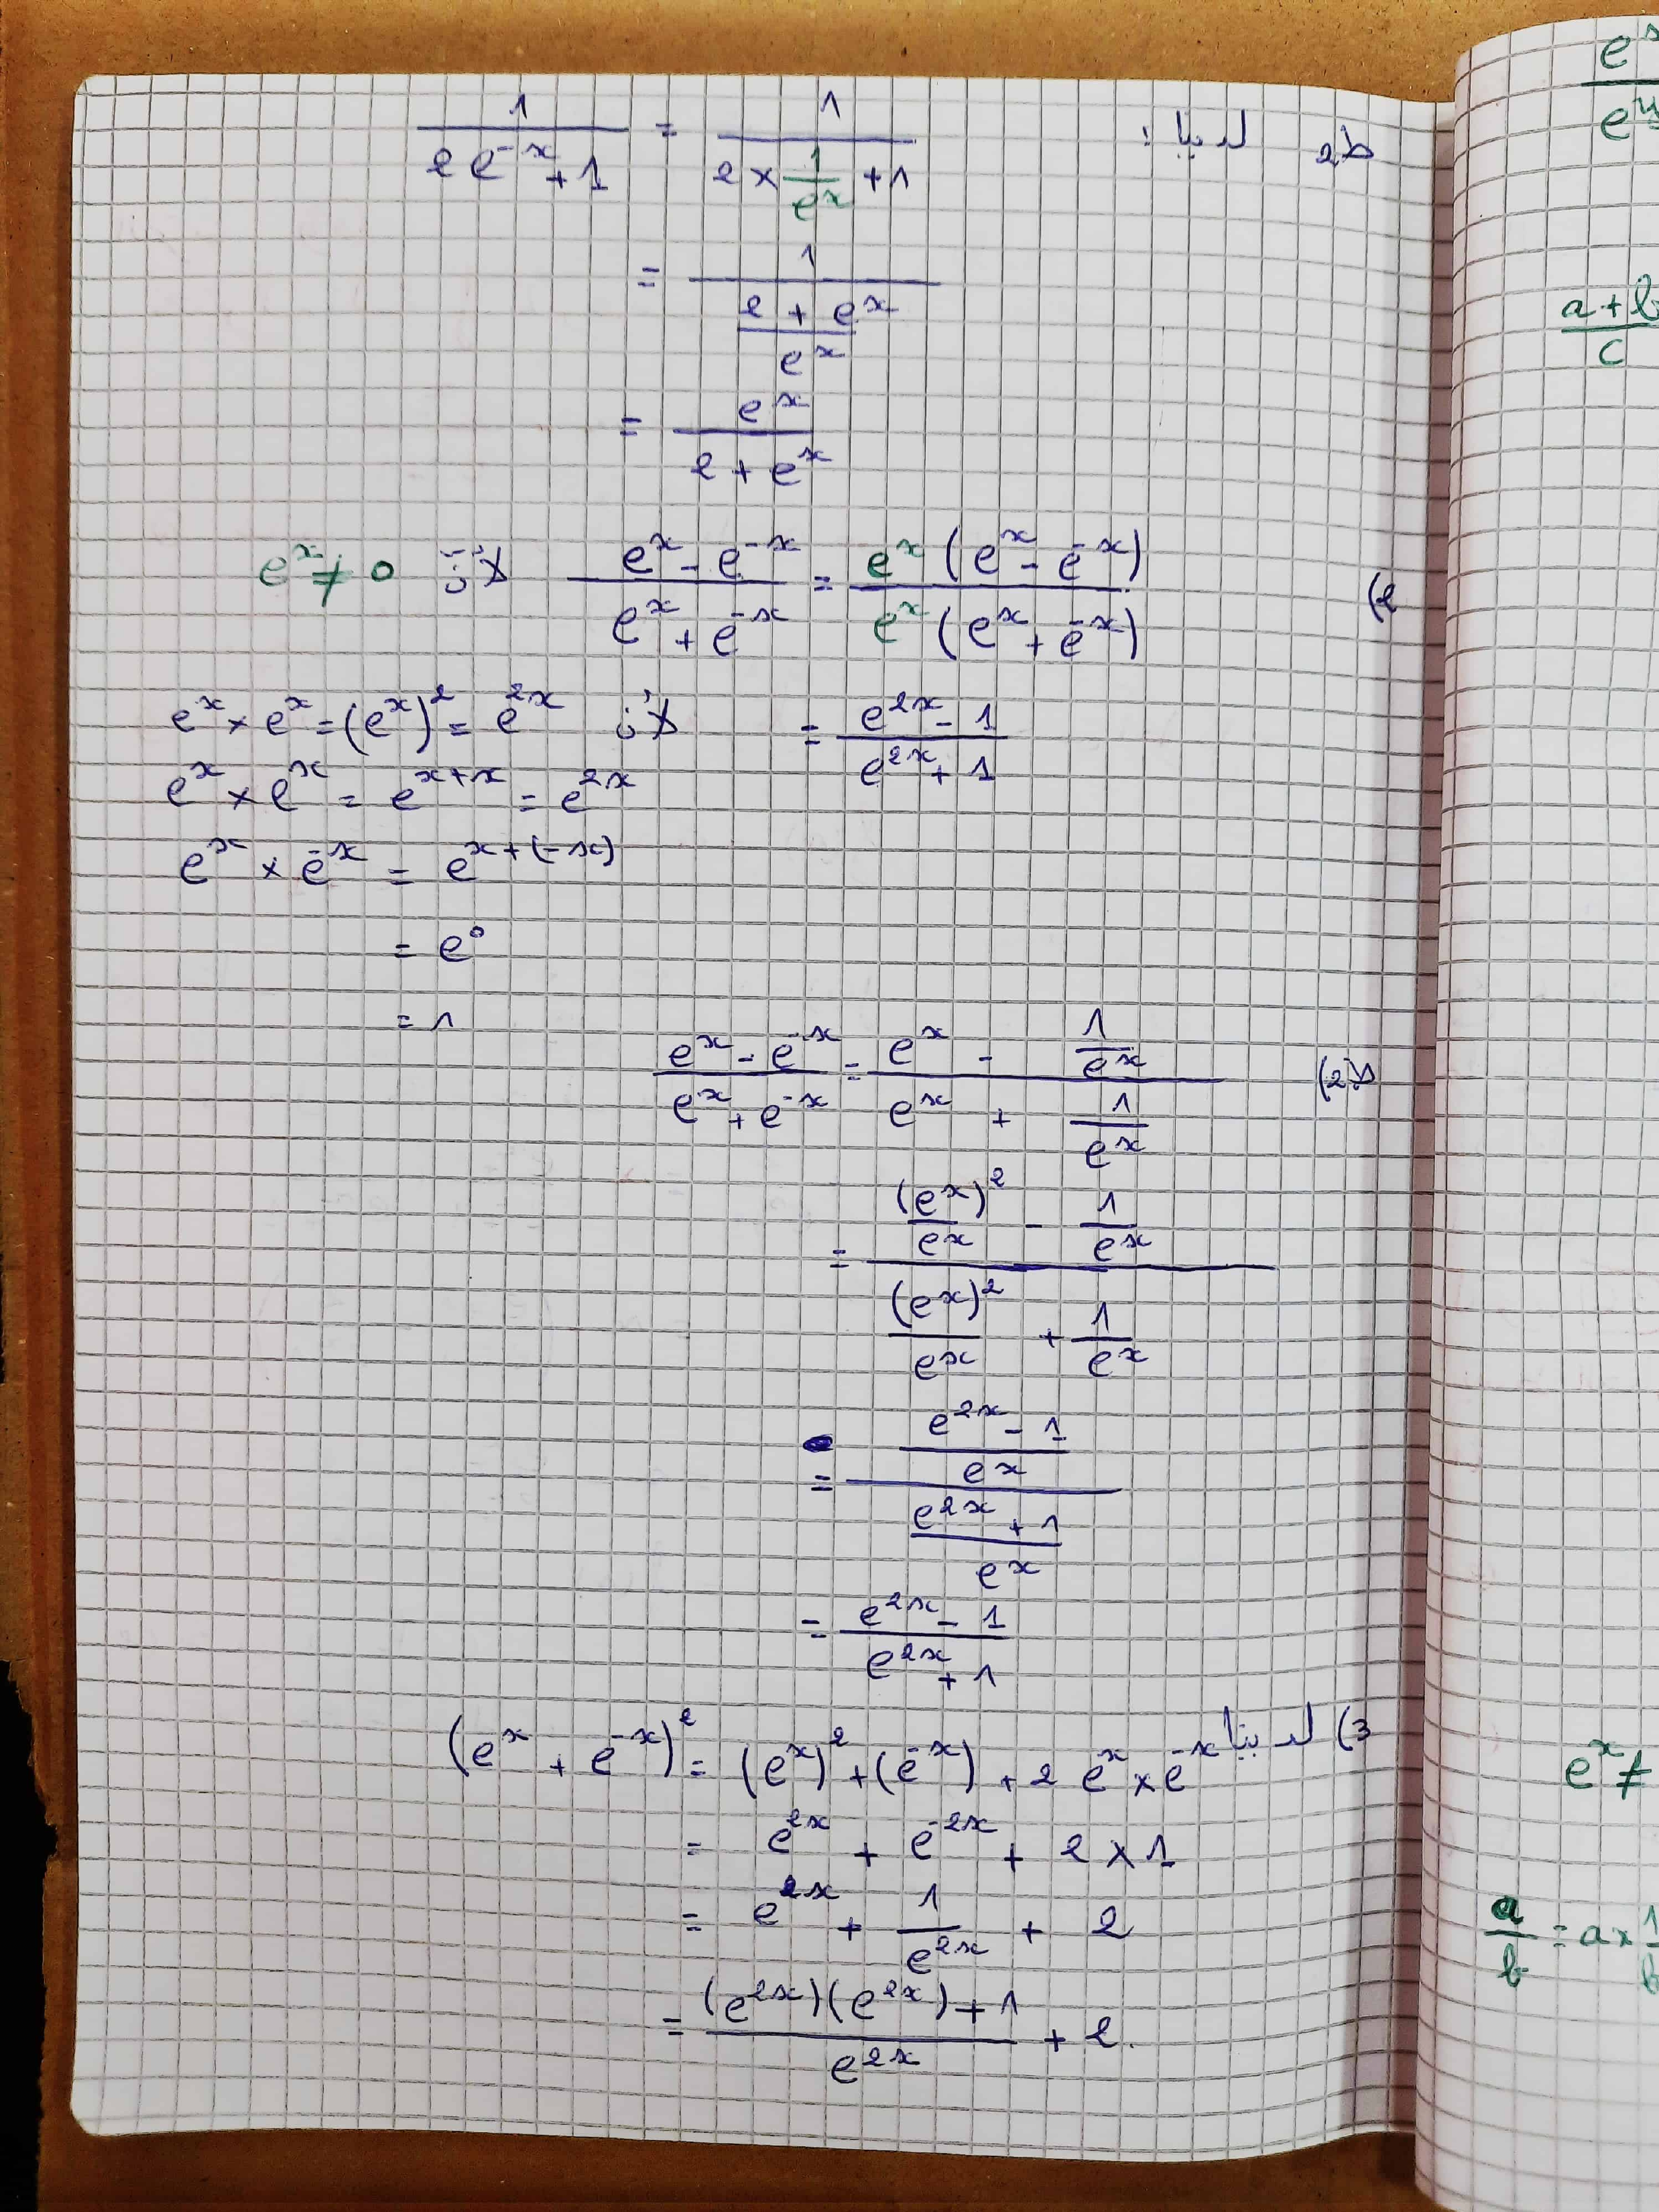 ط2 لدينا : 1/(2e^-x + 1) = 1/(2 × 1/e^x + 1)
= 1/((2 + e^x)/e^x)
= e^x/(2 + e^x)
2) (e^x - e^-x)/(e^x + e^-x) = e^x(e^x - e^-x)/(e^x(e^x + e^-x)) لأن e^x ≠ 0
= (e^2x - 1)/(e^2x + 1) لأن e^x × e^x = (e^x)^2 = e^2x
e^x × e^x = e^(x+x) = e^2x
e^x × e^-x = e^(x+(-x))
= e^0
= 1
ط2) (e^x - e^-x)/(e^x + e^-x) = (e^x - 1/e^x)/(e^x + 1/e^x)
= ((e^x)^2/e^x - 1/e^x)/((e^x)^2/e^x + 1/e^x)
= ((e^2x - 1)/e^x)/((e^2x + 1)/e^x)
= (e^2x - 1)/(e^2x + 1)
3) لدينا (e^x + e^-x)^2 = (e^x)^2 + (e^-x) + 2 e^x × e^-x
= e^2x + e^-2x + 2 × 1
= e^2x + 1/e^2x + 2
= ((e^2x)(e^2x) + 1)/e^2x + 2.
e^x
e^y
a + b
c
e^x ≠
a/b = a × 1/b